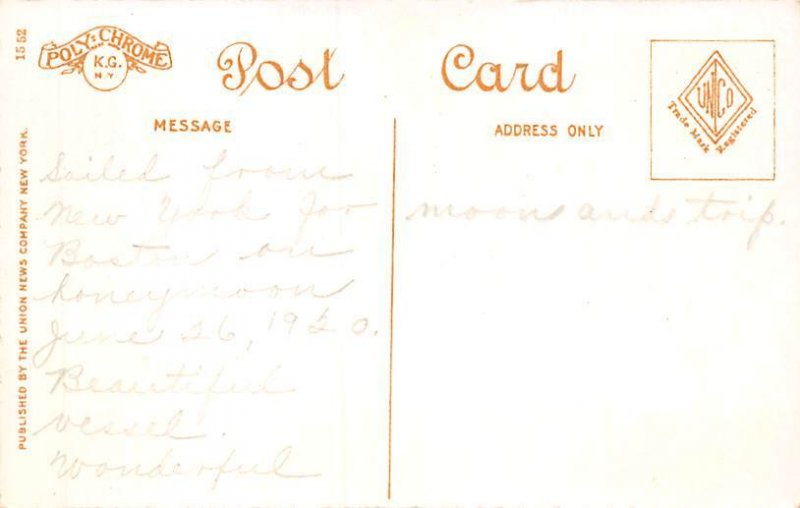 1552
POLY-CHROME
K.G.
N.Y.
Post Card
MESSAGE
ADDRESS ONLY
UNCo
Trade Mark Registered
PUBLISHED BY THE UNION NEWS COMPANY NEW YORK.
Sailed from
New York for
Boston on
honeymoon
June 26, 1920.
Beautiful
vessel.
Wonderful
moon and trip.